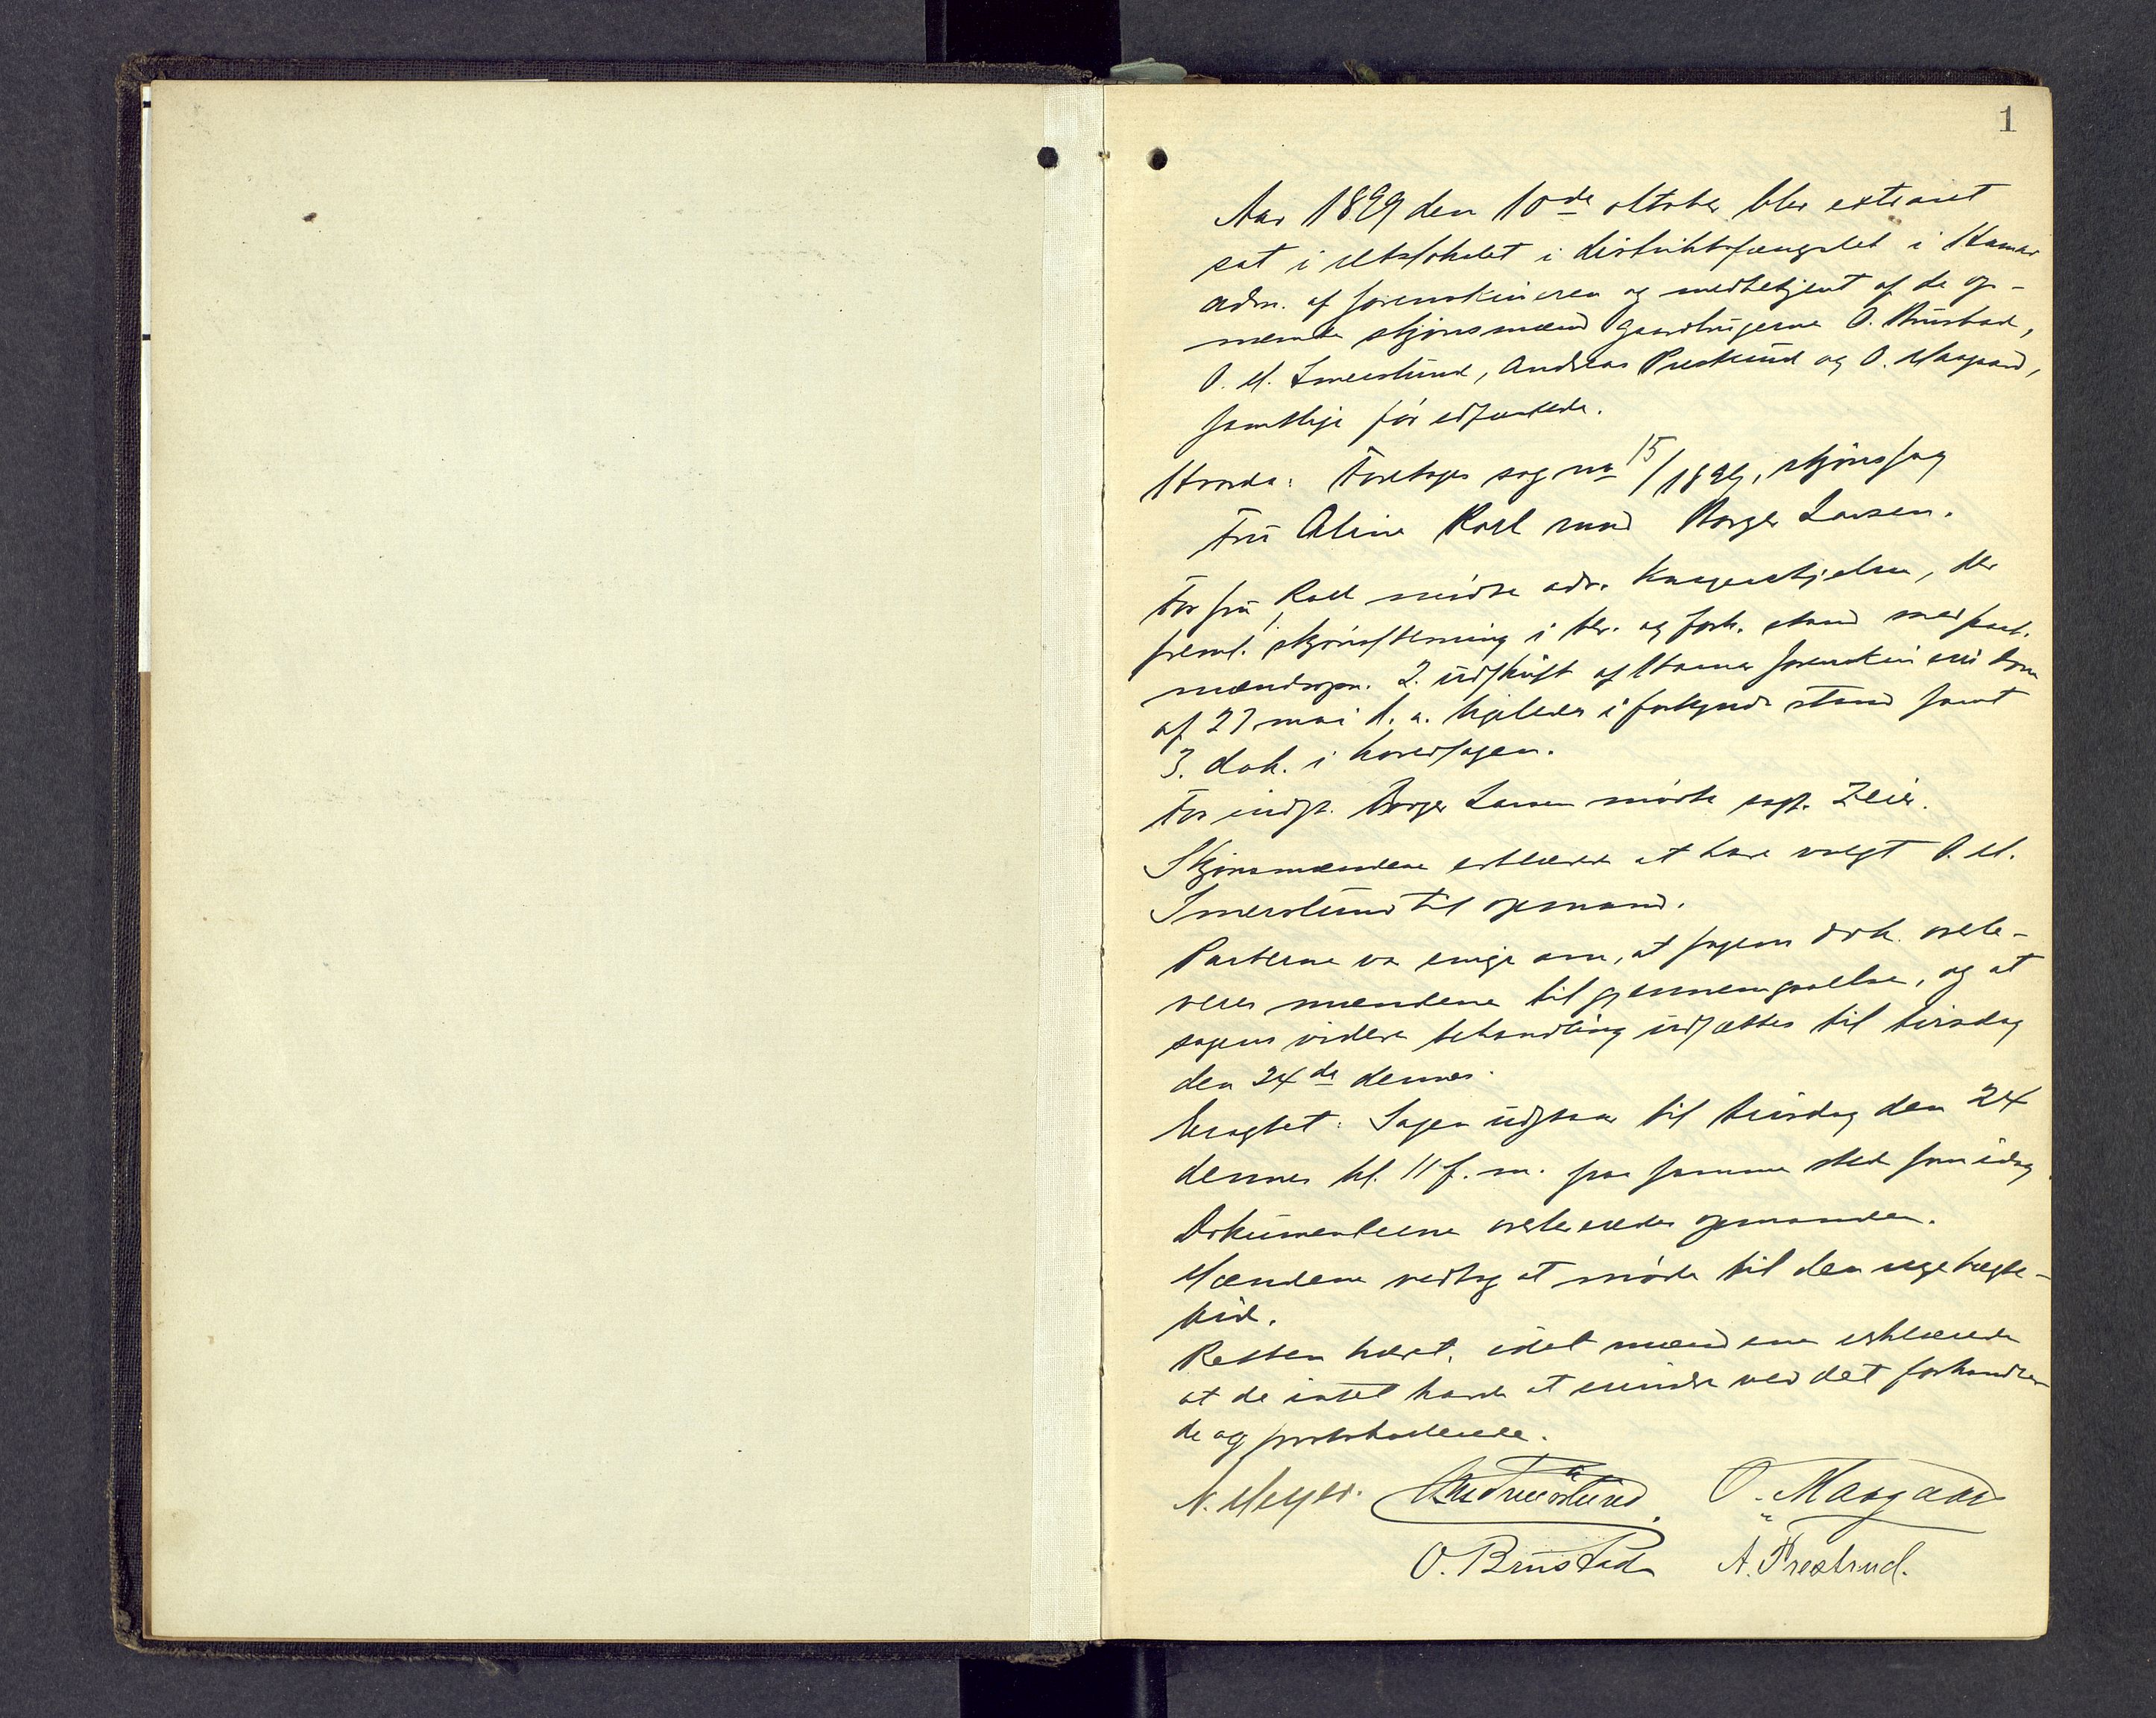 1
Aar 1899 den 10de oktober blev extraret
sat i retslokalet i distriktsfængslet i Hamar
adm. af sorenskriveren og medbetjent af de op-
nævnte skjønsmænd gaardbrugerne O. Brustad,
O. M. Smerslund, Andreas Prestrud og O. Maagaard,
samtlige før edfæstede.
Hvorda: Foretoges sag no 15/1899, skjønssag
Fru Aline Roll mod Borger Larsen.
For fru Roll mødte adv. Kayerskjelm, der
freml. skjønsstevning i ber. og fork. stand med paat.
mændsopn. 2. udskrift af Hamar sorenskriveri dom
af 27 mai d. a. ligeledes i forkyndt stand samt
3. dok. i hovedsagen.
For indst. Borger Larsen mødte sagf. Zeier.
Skjønsmændene erklærede at have valgt O. M.
Smerslund til opmand.
Parterne var enige om, at sagens dok. overle-
veres mændene til gjennemgaaelse, og at
sagens videre behandling udsættes til tirsdag
den 24de dennes.
Eragtet: Sagen udstaar til tirsdag den 24
dennes kl. 11 f. m. paa samme sted som idag.
Dokumenterne overleveredes opmanden.
Mændene vedtog at møde til den
tid.
Retten hævet, idet mændene erklærede
at de intet havde at erindre ved det forhandle-
de og protokollerede.
N. Meyer. OMSmerslund. O. Maagaard
O. Brustad A. Prestrud.